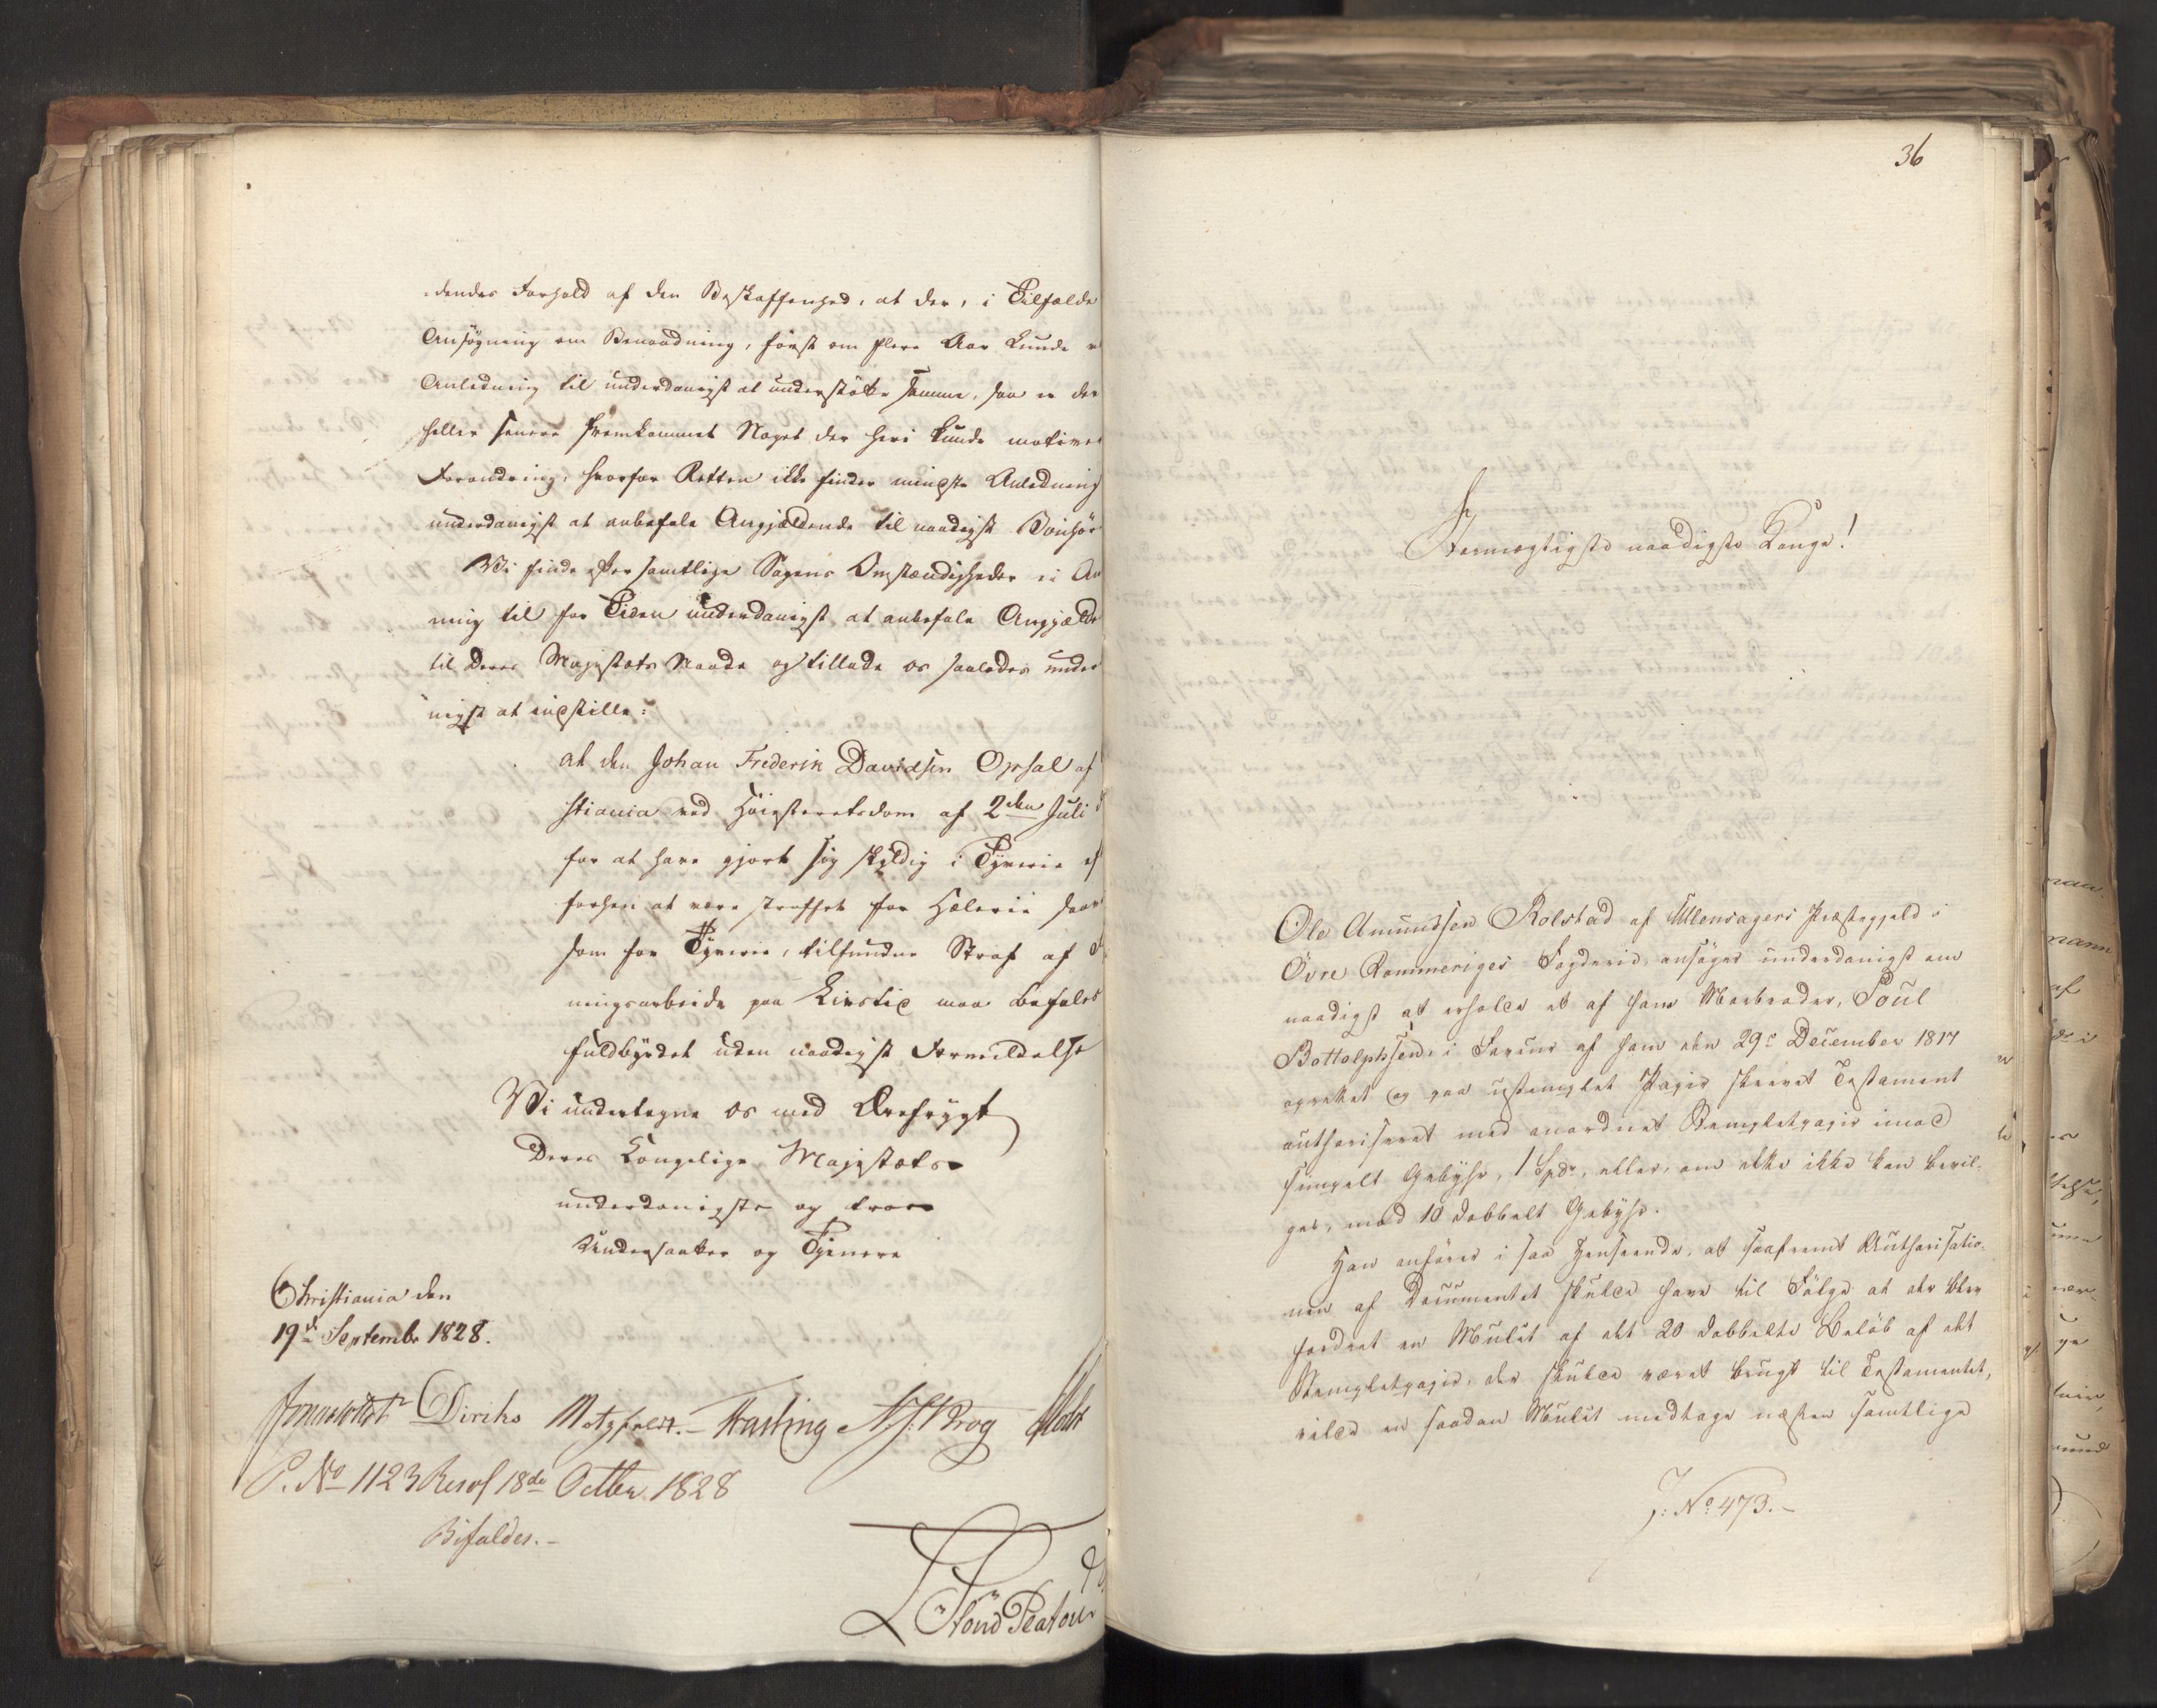 dendes Forhold af den Beskaffenhed, at der, i Tilfælde
Ansøgning om Benaadning, først om flere Aar kunde
Anledning til underdanigst at understøtte samme, saa er der
heller senere fremkommet Noget der heri kunde motivere
Forandring, hvorfor Retten ikke finder mindste Anledning
underdanigst at anbefale Angjældende til naadigst Bønhør
Vi finde efter samtlige Sagens Omstændigheder ei An
ning til for Tiden underdanigst at anbefale Angjælde
til Deres Majestæts Naade og tillade os saaledes under
nigst at indstille:
at den Johan Frederik Davidsen Opsal af
stiania ved Høiesteretsdom af 2den Juli
for at have gjort sig skyldig i Tyverie ef
forhen at være straffet for Hæleri saa
som for Tyverie, tilfundne Straf af
ningsarbeide paa Livstid maa befales
fuldbyrdet uden naadigst Formildelse
Vi undertegne os med Ærefrygt
Deres Kongelige Majestæts
underdanigste og troe
Undersaatter og Tjenere
Christiania den
19de Septembr 1828.
Diriks Motzfeldt. Fasting Krog Holst
P. No 1123 Resol 18de Octbr 1828
Bifaldes.
36
Stormægtigste naadigste Konge!
Ole Amundsen Rolstad af Ullensagers Præstegjeld i
Övre Rommeriges Fogderie, ansøger underdanigst om
naadigst at erholde et af hans Morbroder, Poul
Bottolphsen, i Faveur af ham den 29e December 1817
oprettet og paa ustemplet Papir skrevet Testament
authoriseret med anordnet Stempletpapir imod
simpelt Gebyhr, 1 Spdr, eller, om dette ikke kan bevil-
ges, mod 10 dobbelt Gebyhr.
Han anfører i saa Henseende, at saafremt Authorisatio-
nen af Documentet skulde have til Følge at der blev
fordret en Mulct af det 20 dobbelte Beløb af det
Stempletpapir, der skulde været brugt til Testamentet,
vilde en saadan Mulct medtage næsten samtlige
J: No 473.-